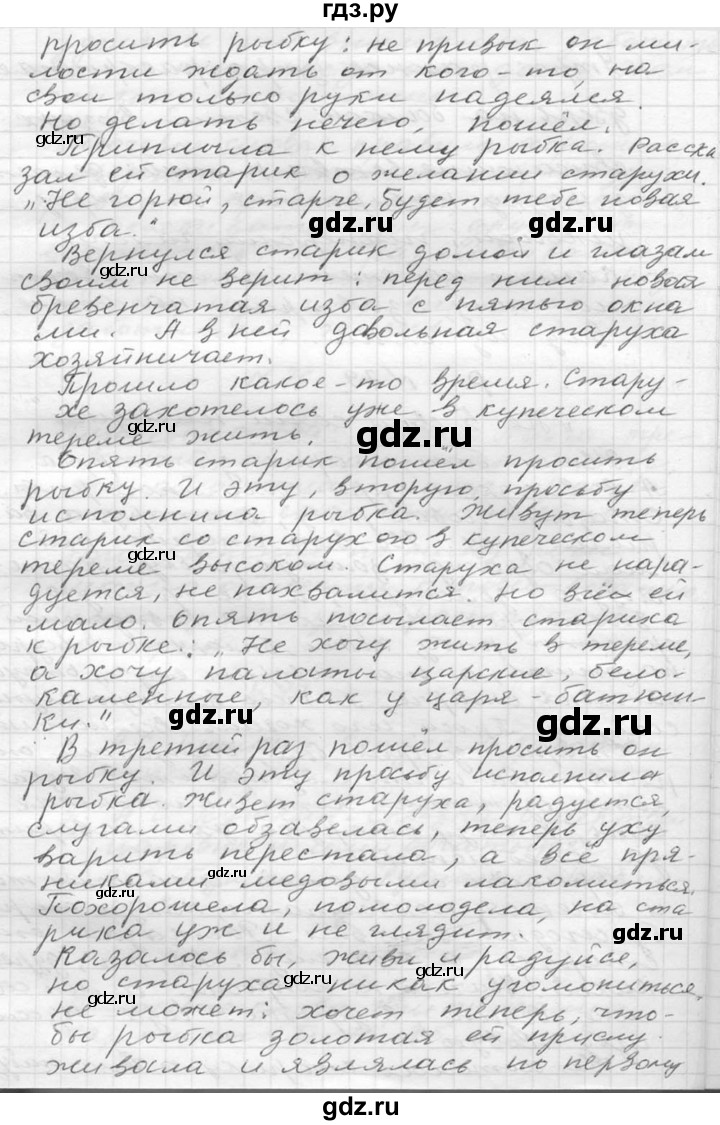 гдз.ру
просить рыбку: не привык он ми-
лости ждать от кого-то, на
свои только руки надеялся.
Но делать нечего, пошёл.
gdz.ru
Приплыла к нему рыбка. Расска
зал ей старик о желании старухи.
„Не горюй, старче, будет тебе новая
изба."
gdz.ru
gdz.ru
Вернулся старик домой и глазам
своим не верит: перед ним новая
gdz.ru
бревенчатая изба с пятью окна
ми. А в ней довольная старуха
gdz.ru
хозяйничает.
Прошло какое-то время. Стару-
хе захотелось уже в купеческом
gdz.ru
тереме жить.
gdz.ru
Опять старик пошёл просить
рыбку. И эту, вторую, просьбу
исполнила рыбка. Живут теперь
старик со старухою в купеческом
gdz.ru
тереме высоком. Старуха не нара-
дуется, не нахвалится. Но всё ей
мало. Опять посылает старика
gdz.ru
к рыбке: „Не хочу жить в тереме,
а хочу палаты царские, бело-
каменные, как у царя-батюш-
ки."
gdz.ru
gdz.ru
В третий раз пошёл просить он
рыбку. И эту просьбу исполнила
gdz.ru
рыбка. Живёт старуха, радуется,
слугами обзавелась, теперь уху
варить перестала, а всё пря-
gdz.ru
никами медовыми лакомиться.
gdz.ru
Похорошела, помолодела, на ста
рика уж и не глядит.
gdz.ru
Казалось бы, живи и радуйся,
но старуха никак угомониться
gdz.ru
gdz.ru
не может: хочет теперь, что-
бы рыбка золотая ей прислу
живала и являлась по первому
gdz.ru
gdz.ru